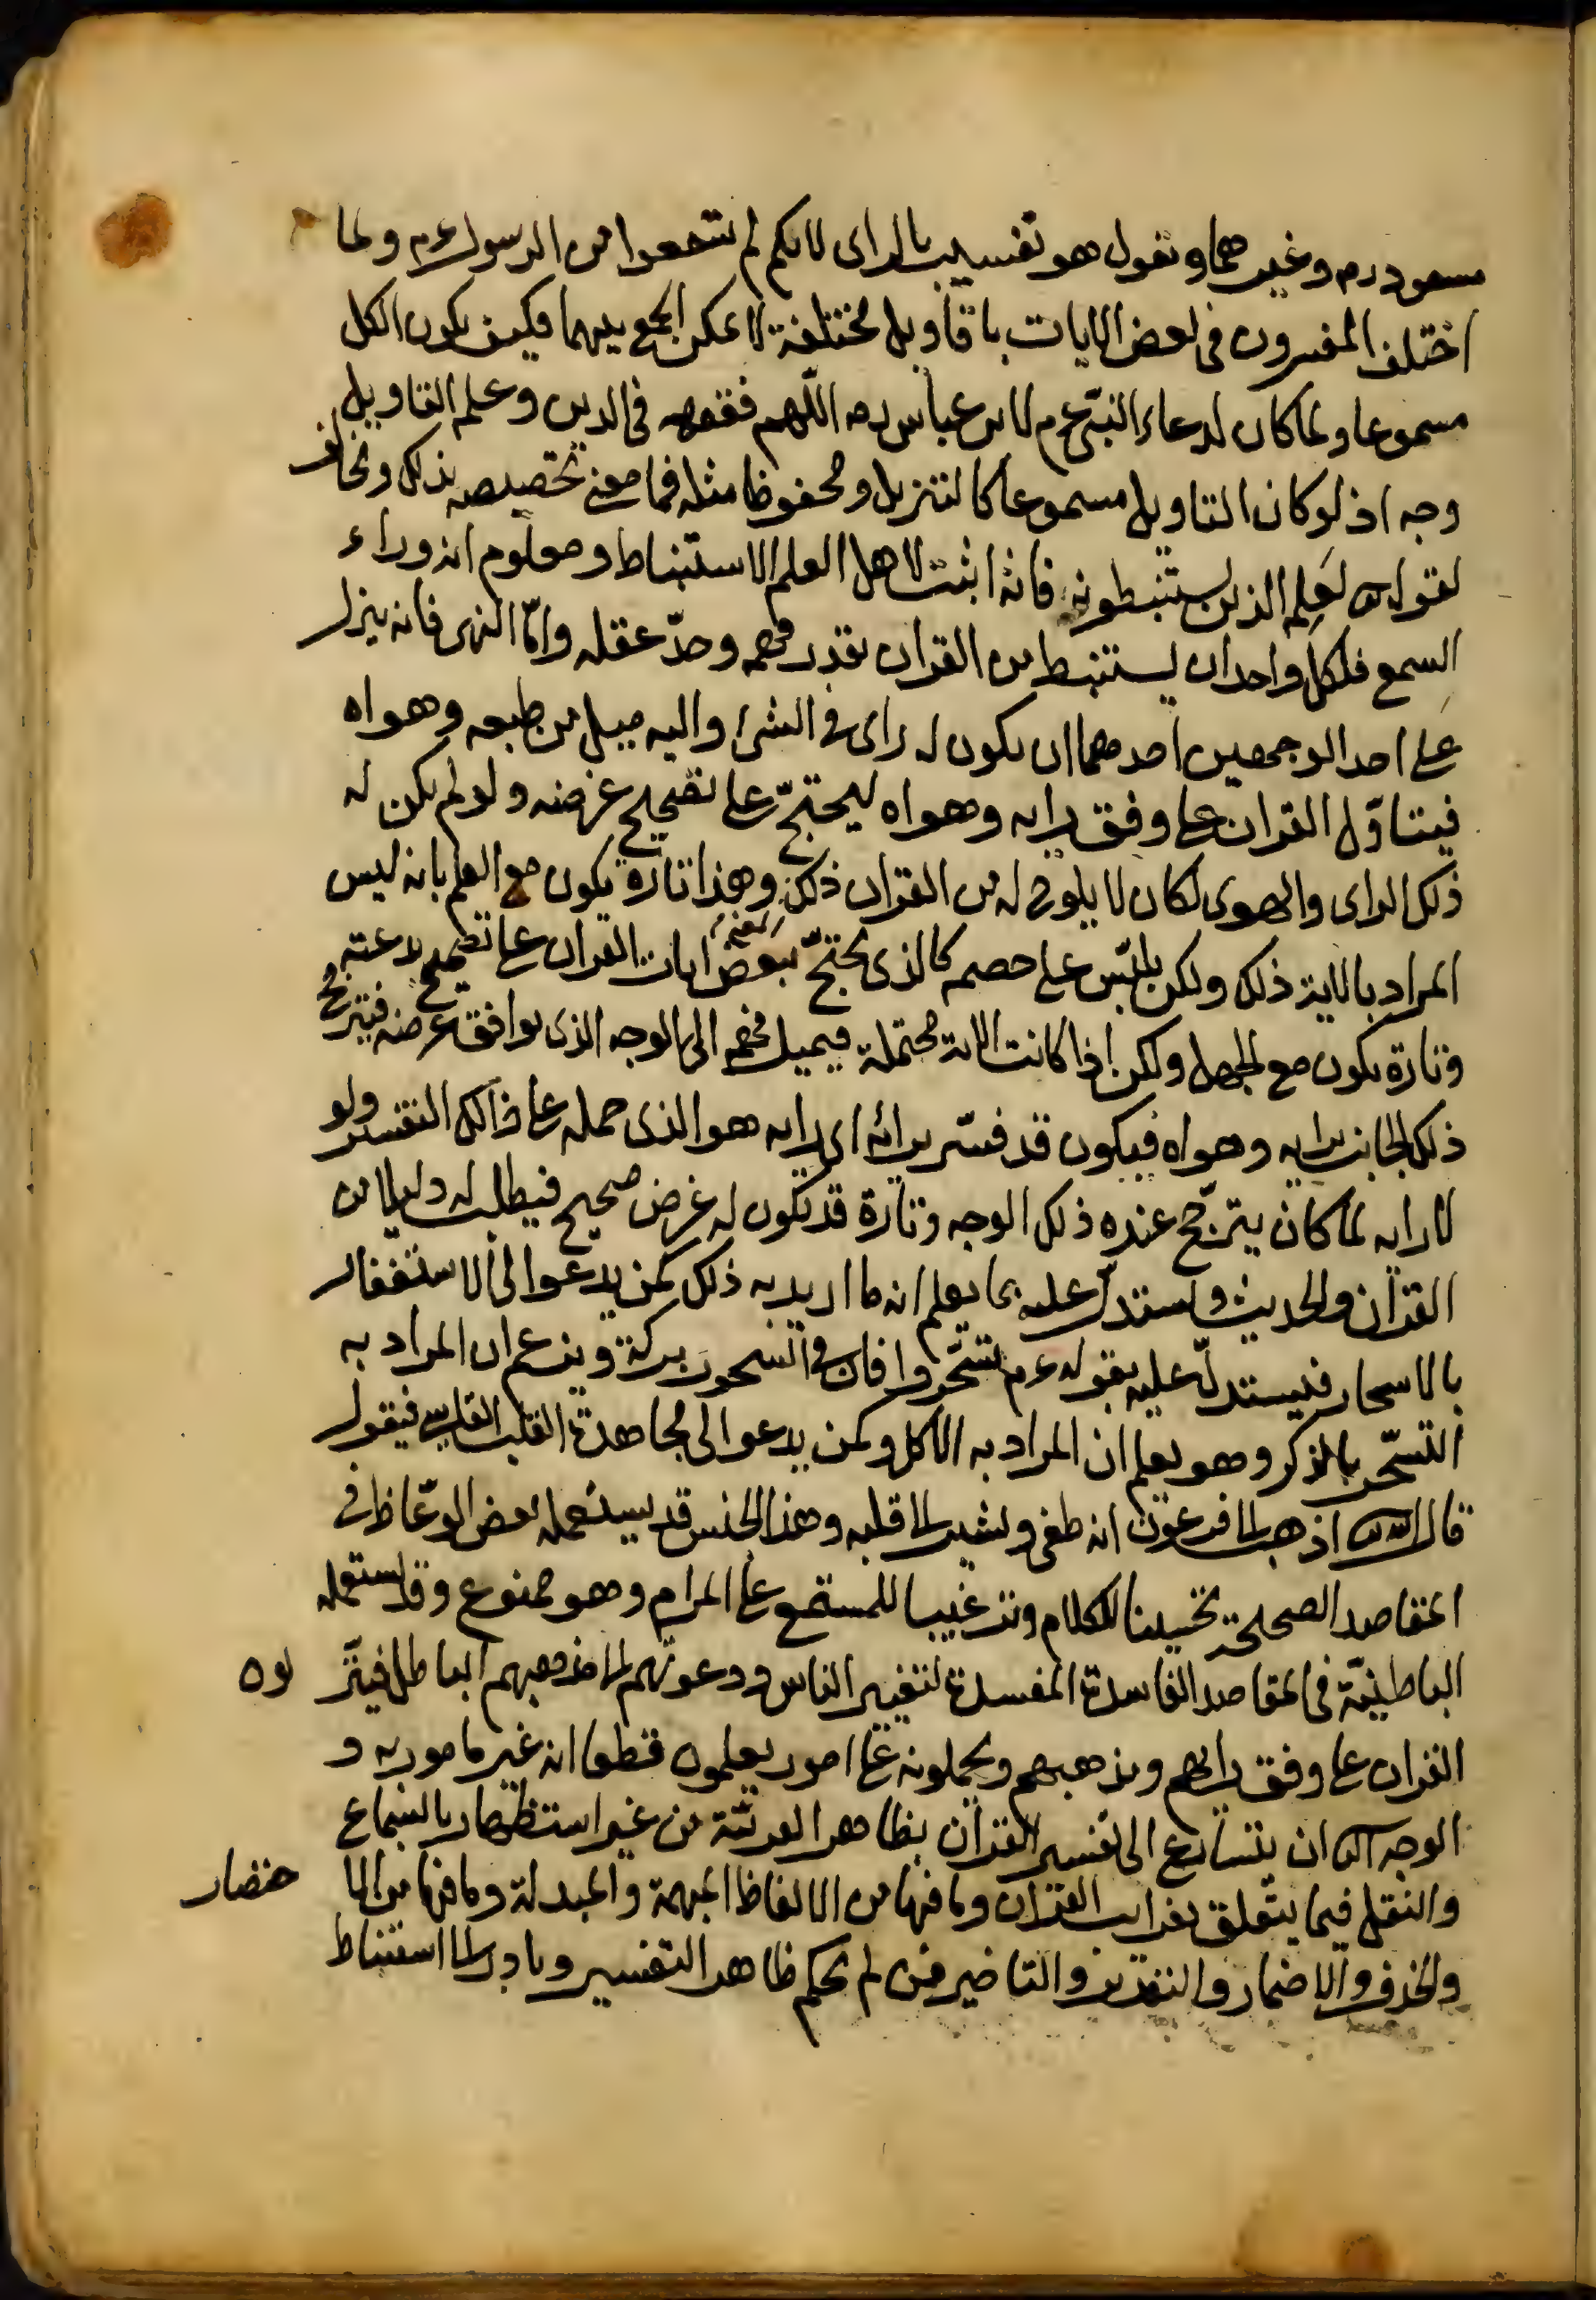 مسعود رم وغيرهما ونقول هو تفسير بالراى لانكم لم تسمعوا من الرسول عم ولما
اختلف المفسرون فى بعض الايات باقاويل مختلفة لا يمكن الجمع بينهما فكيف يكون الكل
مسموعا ولما كان لدعاء النبى عم لابن عباس رم اللهم فقهه فى الدين وعلم التاويل
وجه اذ لو كان التاويل مسموعا كالتنزيل ومحفوظا مثله فما معنى تخصيصه بذلك ونخالف
لقوله تع لَعَلِمه الذين يستنبطونه فانه اثبت لاهل العلم الاستنباط ومعلوم انه وراء
السمع فلكل واحد ان يستنبط من القران بقدر فهمه وحدّ عقله وامّا النهى فانه ينزل
على احد الوجهين احدهما ان يكون له راى فى الشئ واليه ميل من طبعه وهواه
فيتاوّل القران على وفق رايه وهواه ليحتجّ على تصحيح غرضه ولو لم يكن له
ذلك الراى والهوى لكان لا يلوح له من القران ذلك وهذا تارة يكون مع العلم بانه ليس
المراد بالاية ذلك ولكن يلبّس على خصمه كالذى يحتجّ ببعض ايات القران على تصحيح بدعته
وتارة يكون مع الجهل ولكن اذا كانت الاية محتملة فيميل فهمه الى الوجه الذى يوافق غرضه فيترجح
ذلك الجانب برايه وهواه فيكون قد فسّر برائه اى رايه هو الذى حمله على ذالك التفسير ولو
لا رايه لما كان يترجّح عنده ذلك الوجه وتارة قد يكون له غرض صحيح فيطلب له دليلا من
القران والحديث ويستدلّ عليه بما يعلم انه ما اريد به ذلك كمن يدعو الى الاستغفار
بالاسحار فيستدلّ عليه بقوله عم تسحّروا فان فى السحور بركة ويزعم ان المراد به
التسحّر بالذكر وهو يعلم ان المراد به الاكل وكمن يدعو الى مجاهدة القلب القاسى فيقول
قال الله تع اذهب الى فرعون انه طغى ويشير الى قلبه وهذا الجنس قد يستعمله بعض الوعّاظ فى
المقاصد الصحيحة تحسينا للكلام وترغيبا للمستمع على المرام وهو ممنوع وقد يستعمله
الباطنيّة فى المقاصد الفاسدة المفسدة لتغيير الناس ودعوتهم الى مذهبهم الباطل فينزّ لون
القران على وفق رايهم ومذهبهم ويحملونه على امور يعلمون قطعا انه غير مامور به و
الوجه الثانى ان يتسارع الى تفسير القران بظاهر العربيّة من غير استظهار بالسماع
والنقل فيما يتعلق بغرايب القران وما فيها من الالفاظ المبهمة والمبدلة وما فيها من الا ختصار
والحذف والاضمار والتقديم والتاخير فمن لم يحكم ظاهر التفسير وبادر الى استنباط